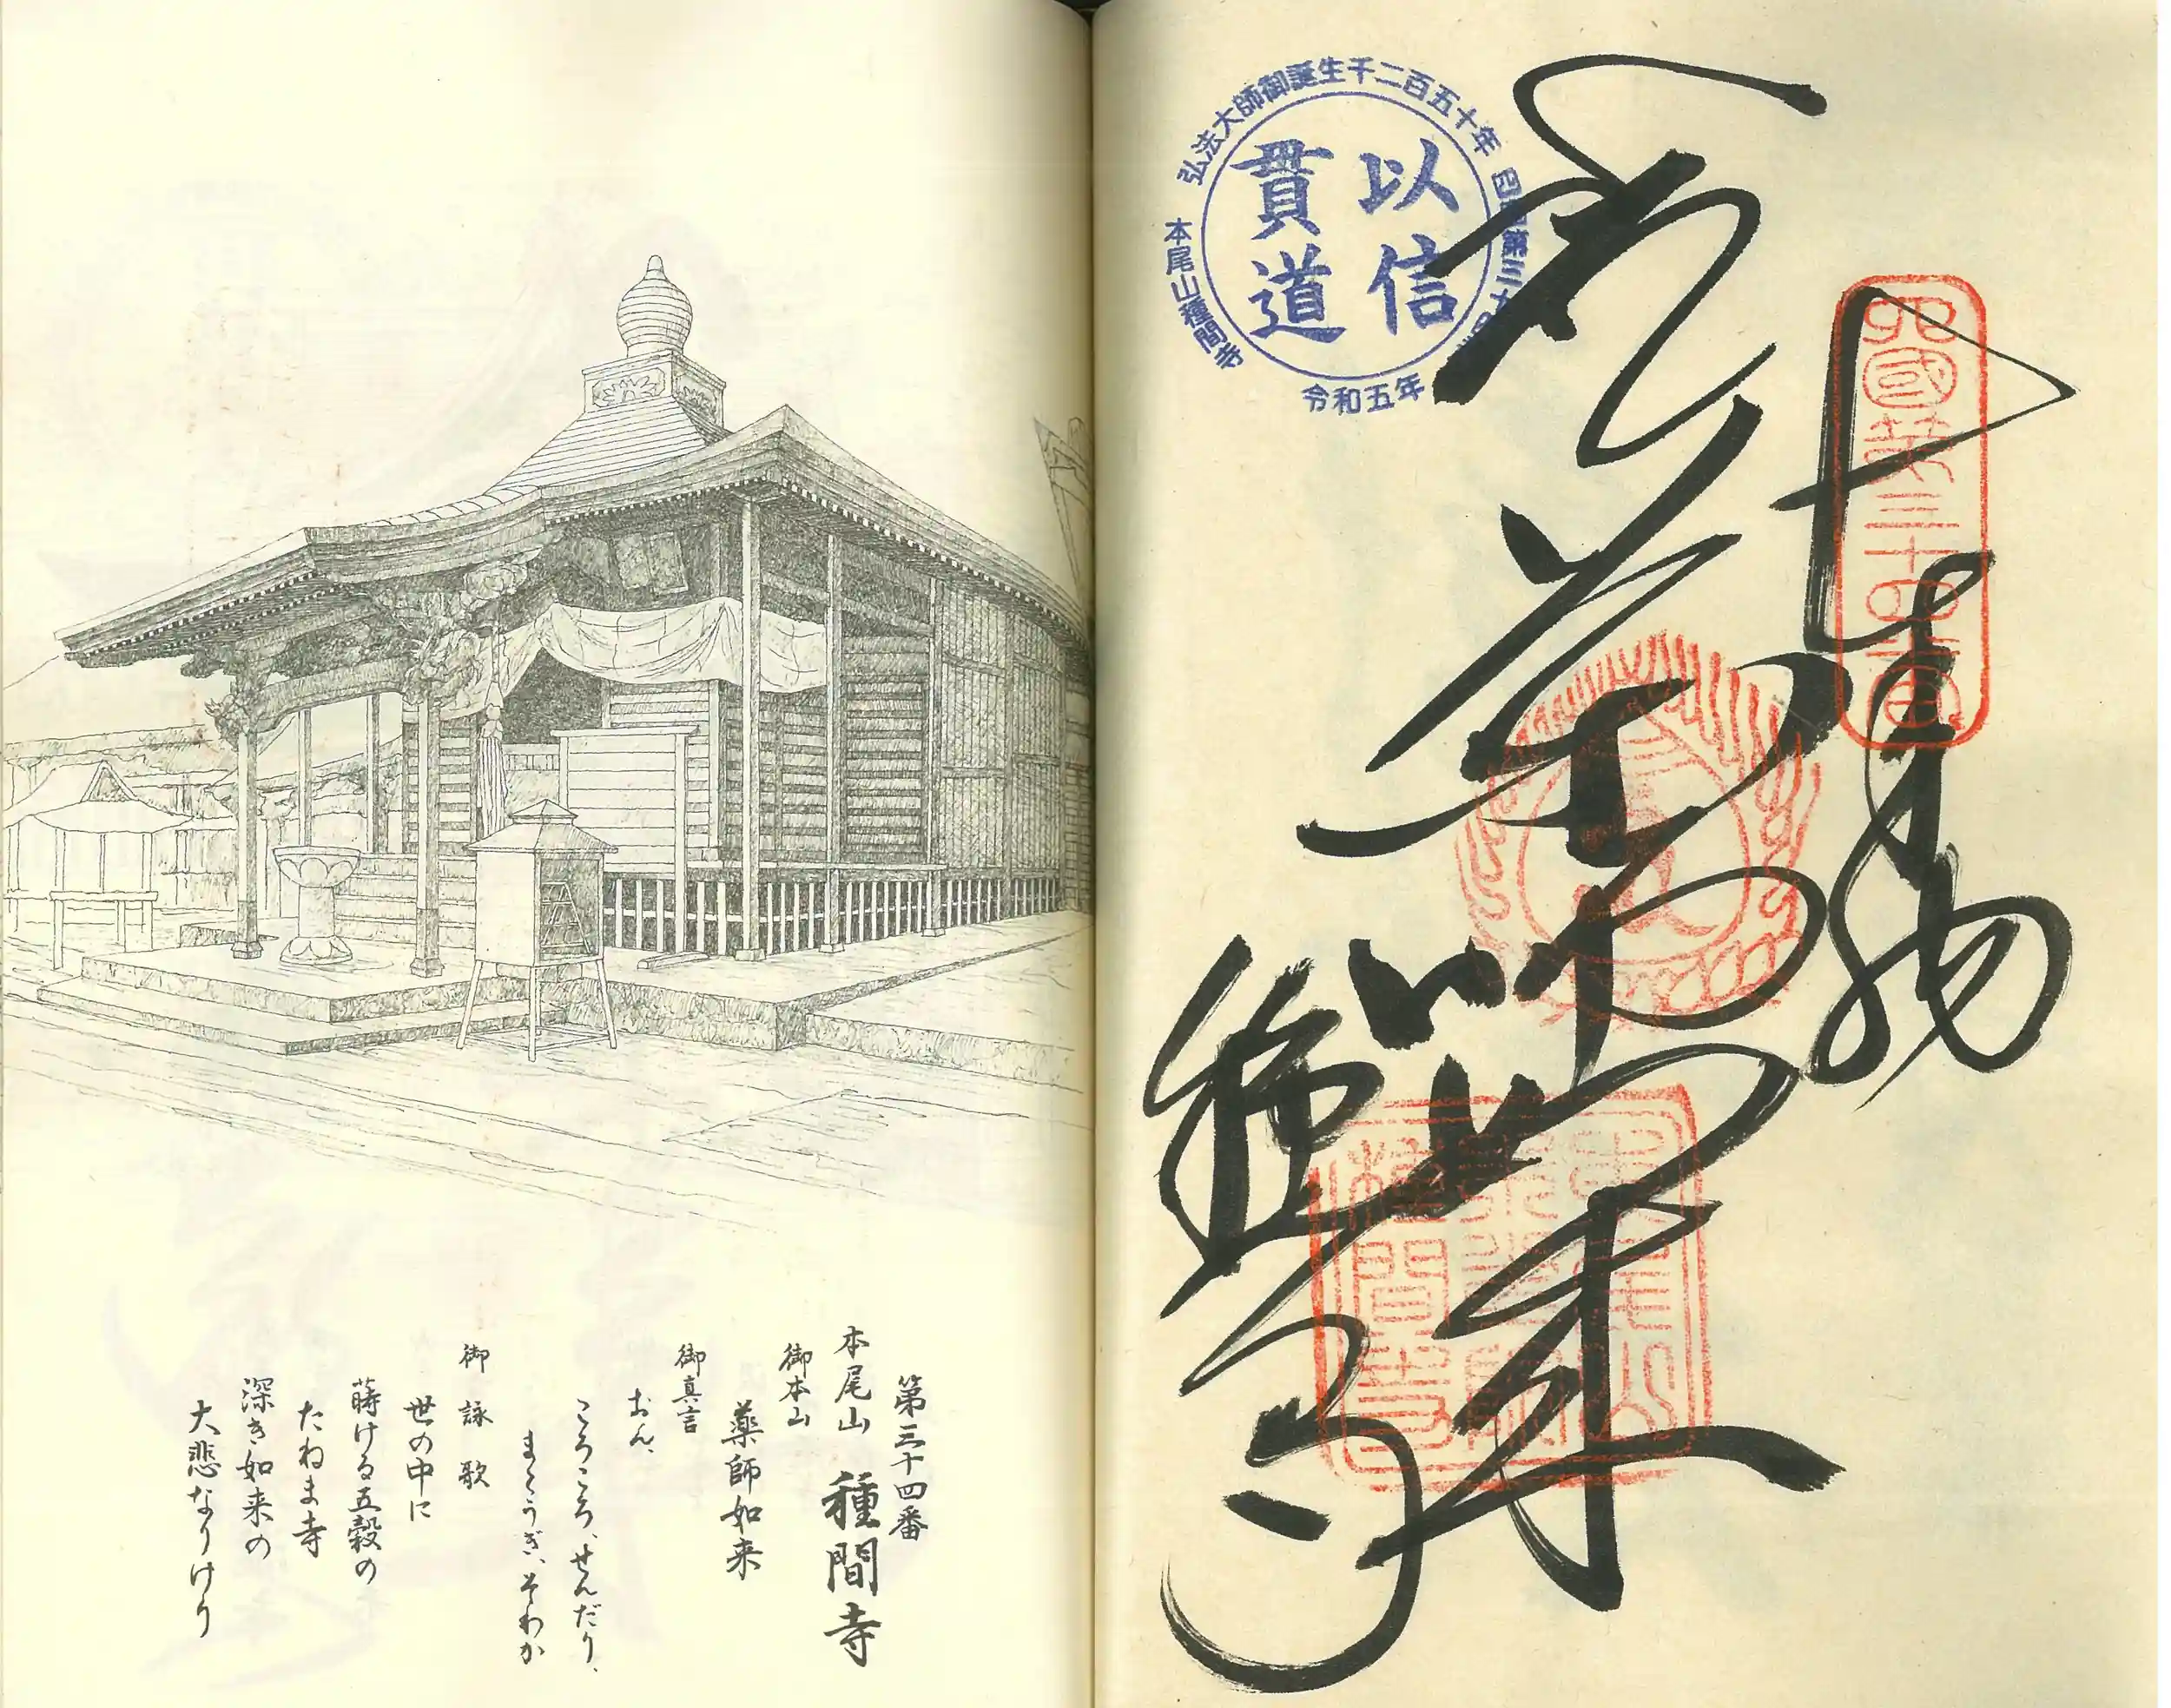 第三十四番
本尾山 種間寺
御本山
薬師如来
御真言
おん、
ころころ、せんだり、
まとうぎ、そわか
御詠歌
世の中に
蒔ける五穀の
たねま寺
深き如来の
大悲なりけり
弘法大師御誕生千二百五十年
以信
貫道
本尾山種間寺
令和五年
四國第三十四番
奉納
薬師如来
種間寺